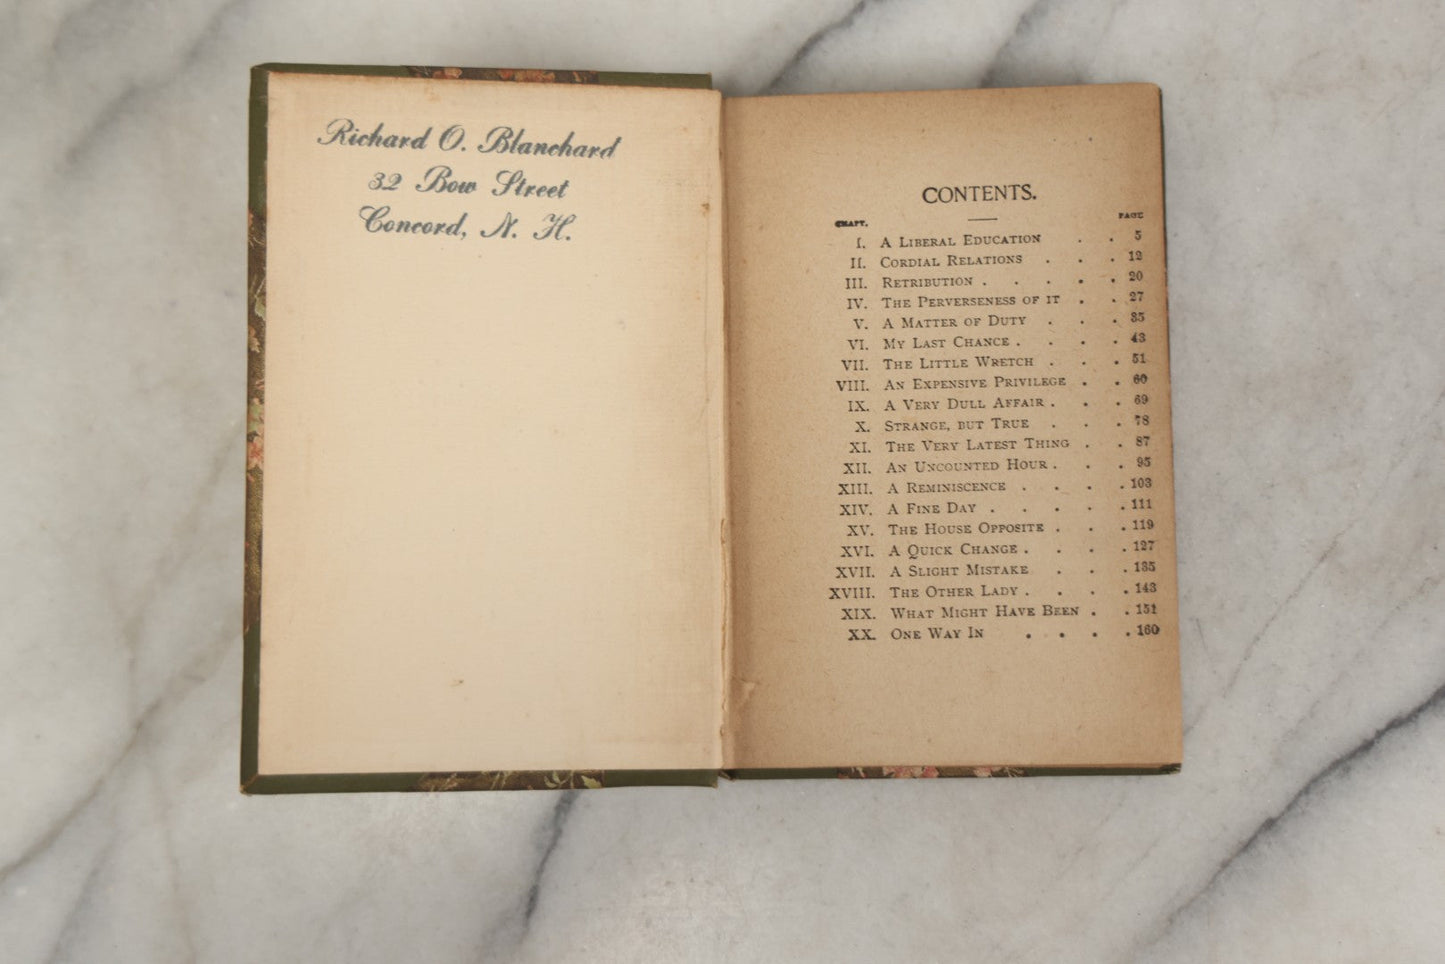 Richard O. Blanchard
32 Bow Street
Concord, N. H.
CONTENTS.
CHAPT. PAGE
I. A LIBERAL EDUCATION . . 5
II. CORDIAL RELATIONS . . . 12
III. RETRIBUTION . . . . . 20
IV. THE PERVERSENESS OF IT . . 27
V. A MATTER OF DUTY . . . 35
VI. MY LAST CHANCE . . . . 43
VII. THE LITTLE WRETCH . . . 51
VIII. AN EXPENSIVE PRIVILEGE . . 60
IX. A VERY DULL AFFAIR . . . 69
X. STRANGE, BUT TRUE . . . 78
XI. THE VERY LATEST THING . . 87
XII. AN UNCOUNTED HOUR . . . 95
XIII. A REMINISCENCE . . . . 103
XIV. A FINE DAY . . . . . 111
XV. THE HOUSE OPPOSITE . . . 119
XVI. A QUICK CHANGE . . . . 127
XVII. A SLIGHT MISTAKE . . . 135
XVIII. THE OTHER LADY . . . . 143
XIX. WHAT MIGHT HAVE BEEN . . 151
XX. ONE WAY IN . . . . 160